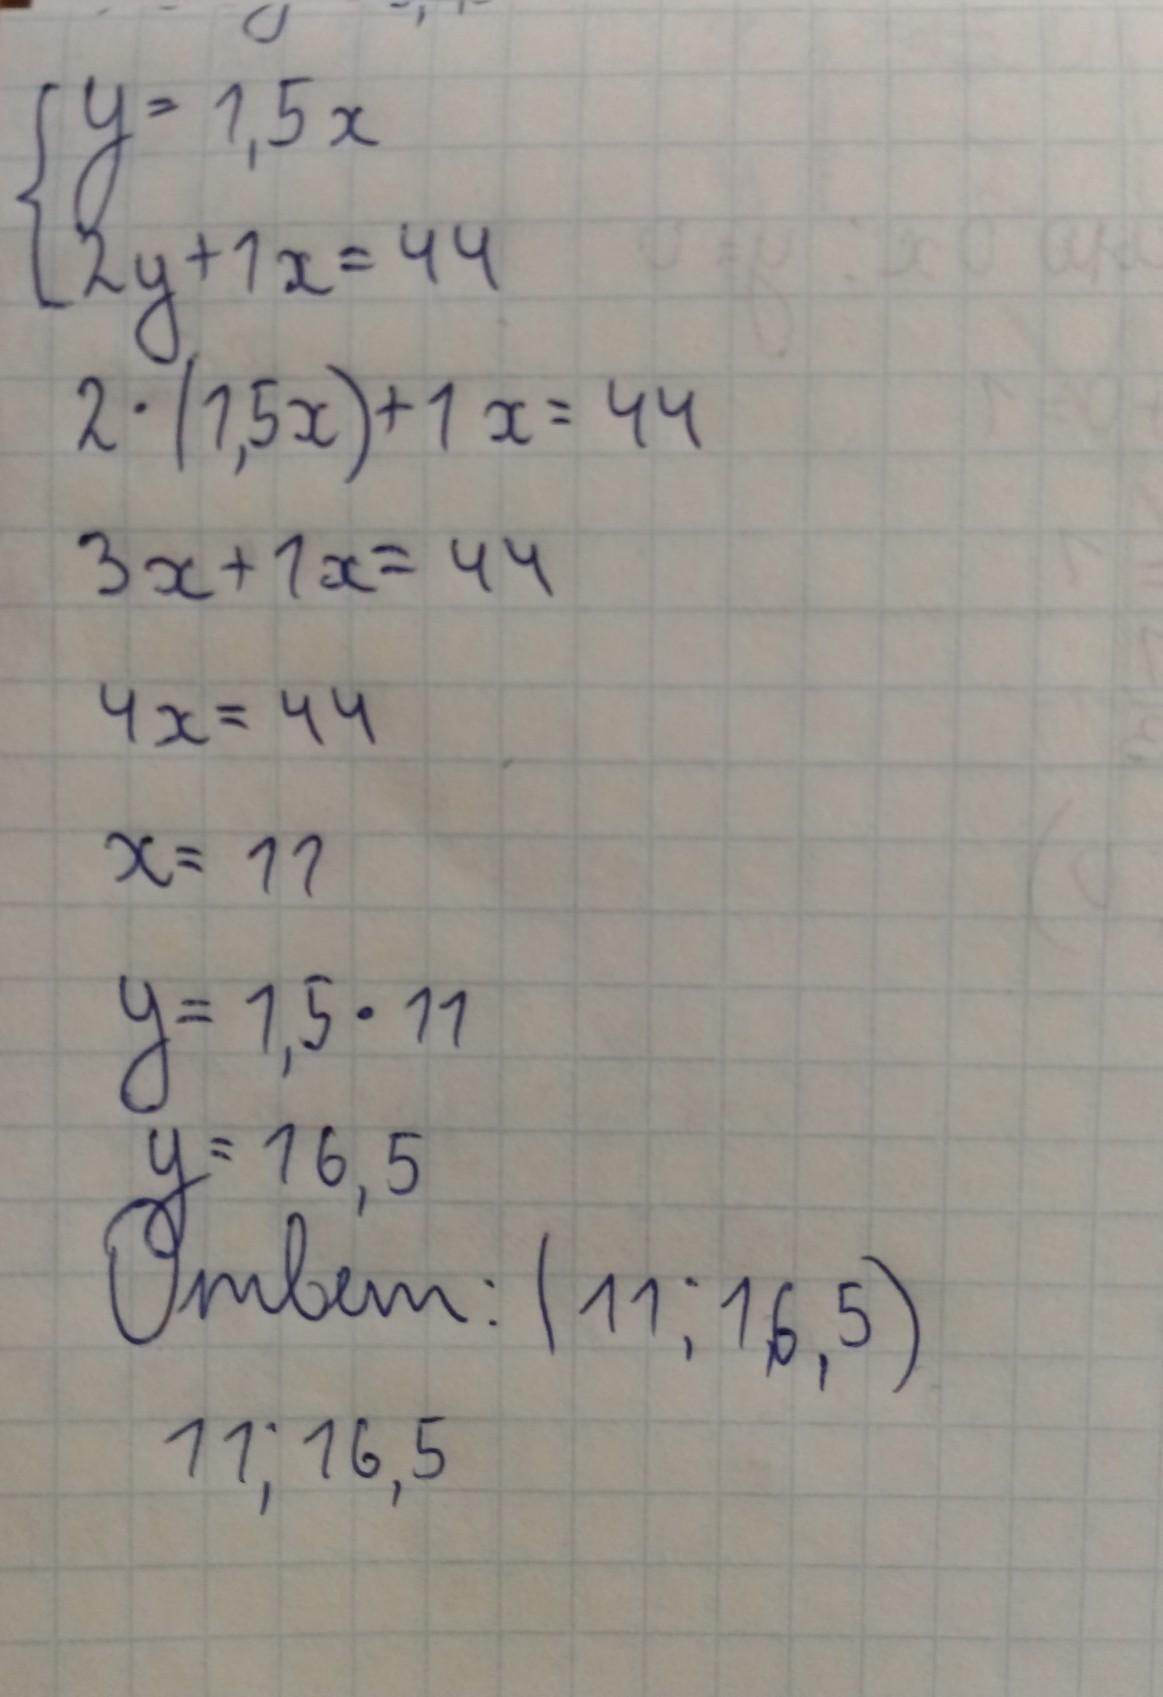 y = 1,5x
2y+1x=44
2·(1,5x)+1x=44
3x+1x=44
4x=44
x=11
y=1,5·11
y=16,5
Ответ: (11; 16,5)
11; 16,5